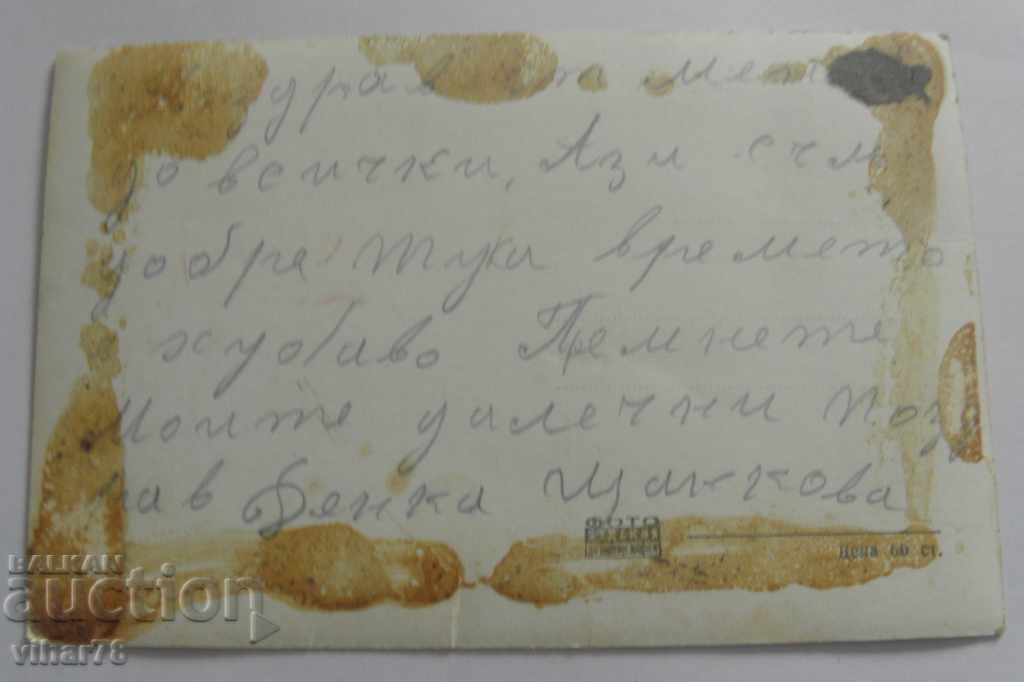 здрав от мен
до всички, Аз л съм
добре тука времето
хубаво Премнете
Моите далечни поз
рав Денка Цанкова
ФОТО
Цена 60 ст.
BALKAN
auction
vihar78